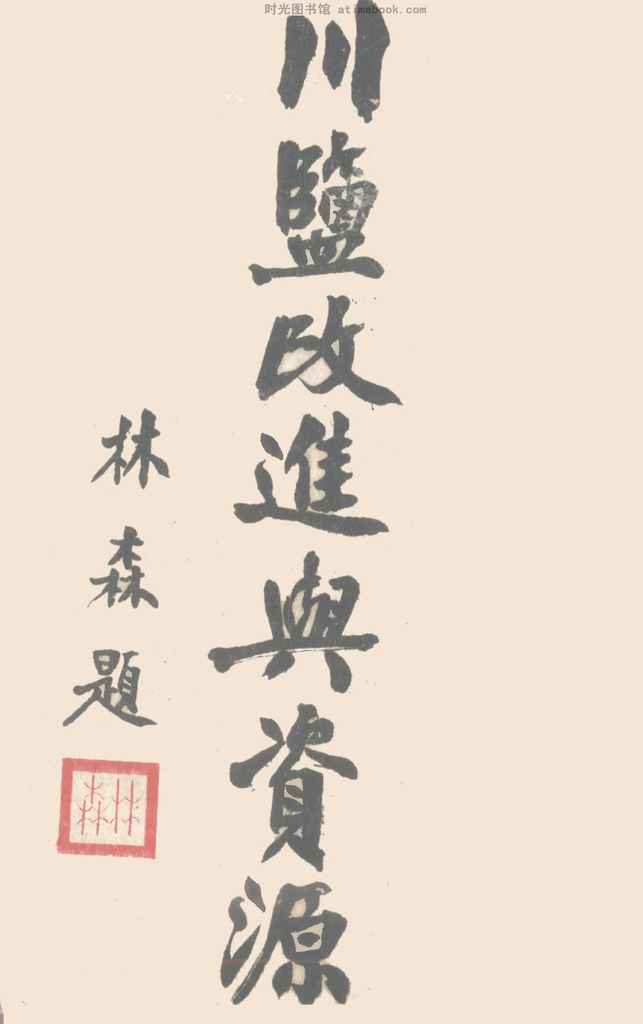 时光图书馆 atimebook.com
川鹽改進與資源
林森題
林森